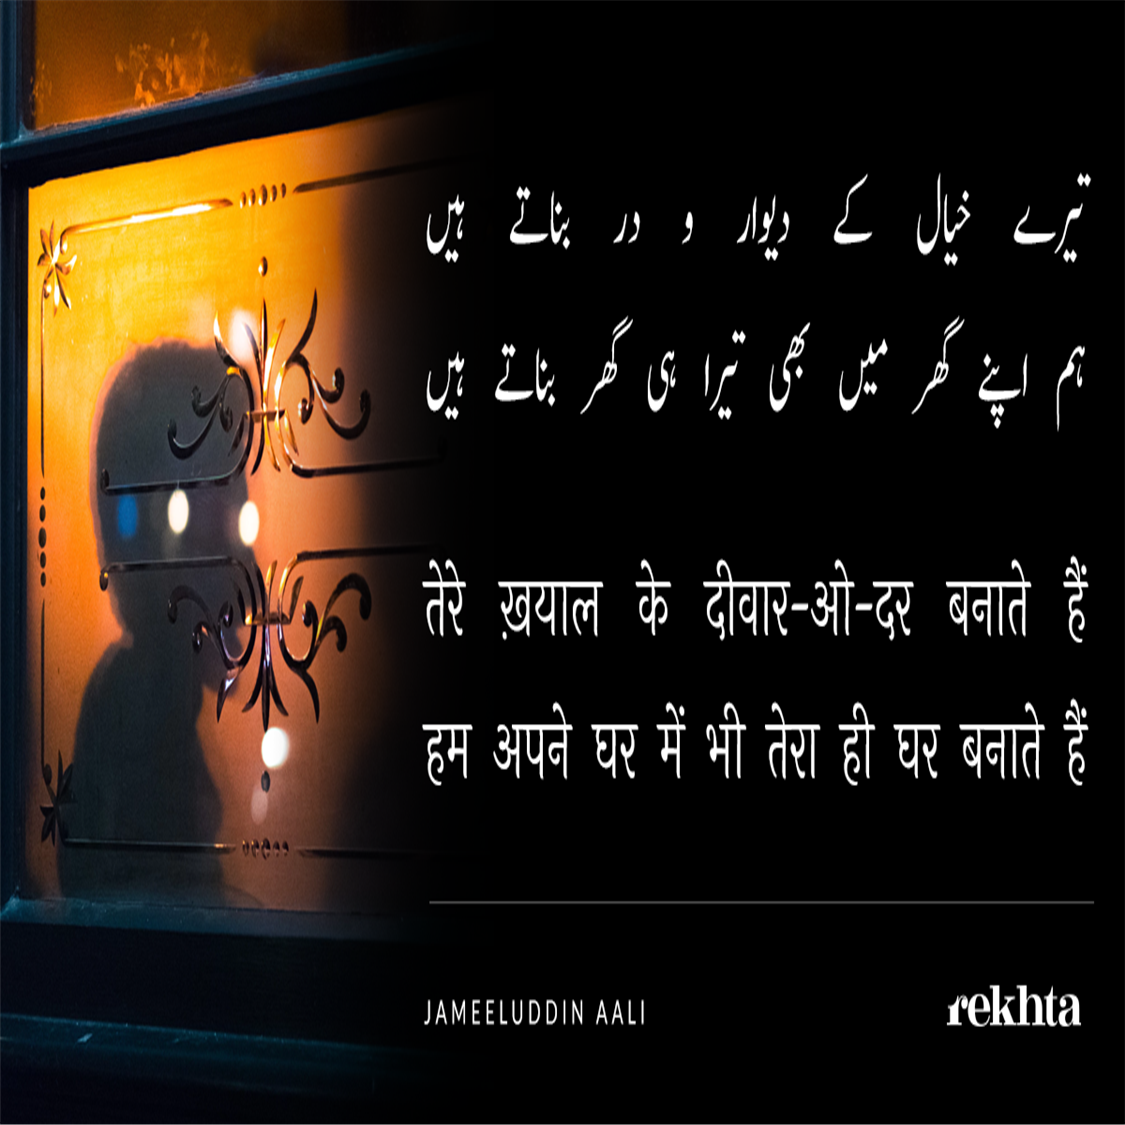 تیرے خیال کے دیوار و در بناتے ہیں
ہم اپنے گھر میں بھی تیرا ہی گھر بناتے ہیں
तेरे ख़याल के दीवार-ओ-दर बनाते हैं
हम अपने घर में भी तेरा ही घर बनाते हैं
JAMEELUDDIN AALI
rekhta